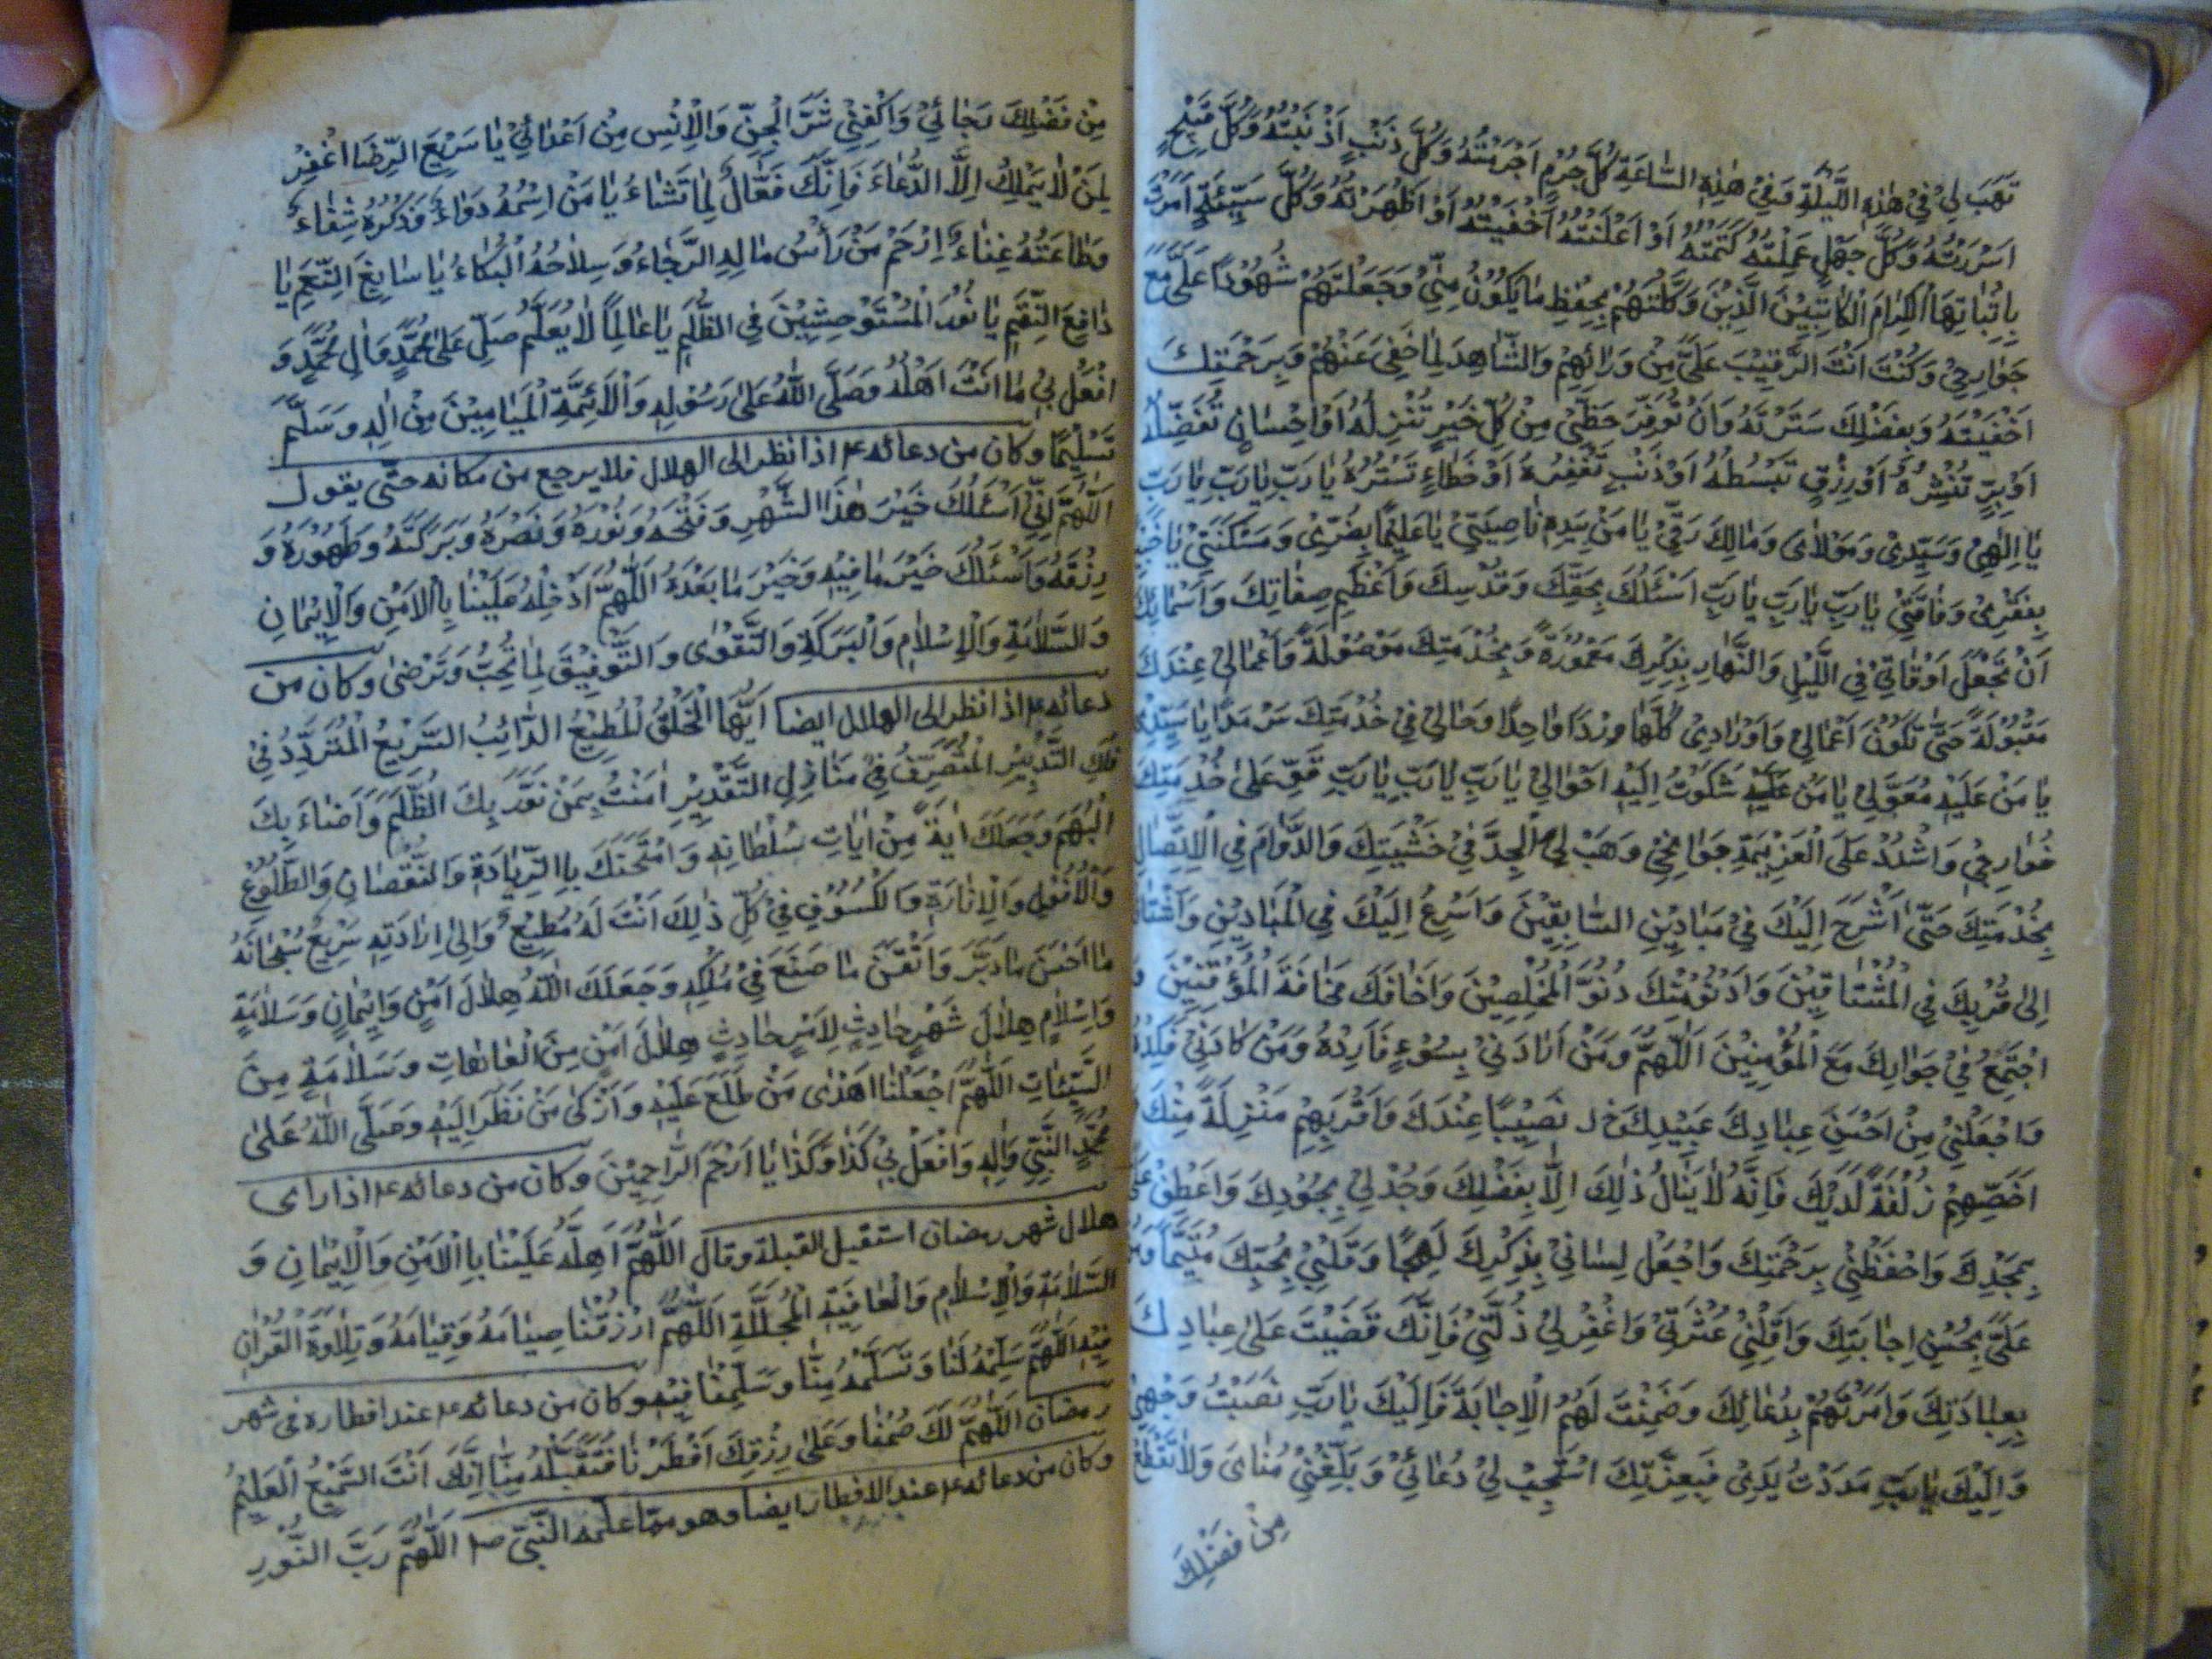 تَهَبَ لِيْ فِيْ هٰذِهِ اللَّيْلَةِ وَفِيْ هٰذِهِ السَّاعَةِ كُلَّ جُرْمٍ اَجْرَمْتُهُ وَكُلَّ ذَنْبٍ اَذْنَبْتُهُ وَكُلَّ قَبِيْحٍ
اَسْرَرْتُهُ وَكُلَّ جَهْلٍ عَمِلْتُهُ كَتَمْتُهُ اَوْ اَعْلَنْتُهُ اَخْفَيْتُهُ اَوْ اَظْهَرْتُهُ وَكُلَّ سَيِّئَةٍ اَمَرْتَ
بِاِثْبَاتِهَا الْكِرَامَ الْكَاتِبِيْنَ الَّذِيْنَ وَكَّلْتَهُمْ بِحِفْظِ مَا يَكُوْنُ مِنِّيْ وَجَعَلْتَهُمْ شُهُوْدًا عَلَيَّ مَعَ
جَوَارِحِيْ وَكُنْتَ اَنْتَ الرَّقِيْبَ عَلَيَّ مِنْ وَرَائِهِمْ وَالشَّاهِدَ لِمَا خَفِيَ عَنْهُمْ وَبِرَحْمَتِكَ
اَخْفَيْتَهُ وَبِفَضْلِكَ سَتَرْتَهُ وَاَنْ تُوَفِّرَ حَظِّيْ مِنْ كُلِّ خَيْرٍ تُنْزِلُهُ اَوْ اِحْسَانٍ تُفَضِّلُهُ
اَوْ بِرٍّ تَنْشُرُهُ اَوْ رِزْقٍ تَبْسُطُهُ اَوْ ذَنْبٍ تَغْفِرُهُ اَوْ خَطَاءٍ تَسْتُرُهُ يَا رَبِّ يَا رَبِّ يَا رَبِّ
يَا اِلٰهِيْ وَسَيِّدِيْ وَمَوْلَايَ وَمَالِكَ رِقِّيْ يَا مَنْ بِيَدِهِ نَاصِيَتِيْ يَا عَلِيْمًا بِضُرِّيْ وَمَسْكَنَتِيْ يَا خَبِيْرًا
بِفَقْرِيْ وَفَاقَتِيْ يَا رَبِّ يَا رَبِّ يَا رَبِّ اَسْئَلُكَ بِحَقِّكَ وَقُدْسِكَ وَاَعْظَمِ صِفَاتِكَ وَاَسْمَائِكَ
اَنْ تَجْعَلَ اَوْقَاتِيْ فِي اللَّيْلِ وَالنَّهَارِ بِذِكْرِكَ مَعْمُوْرَةً وَبِخِدْمَتِكَ مَوْصُوْلَةً وَاَعْمَالِيْ عِنْدَكَ
مَقْبُوْلَةً حَتّٰى تَكُوْنَ اَعْمَالِيْ وَاَوْرَادِيْ كُلُّهَا وِرْدًا وَاحِدًا وَحَالِيْ فِيْ خِدْمَتِكَ سَرْمَدًا يَا سَيِّدِيْ
يَا مَنْ عَلَيْهِ مُعَوَّلِيْ يَا مَنْ عَلَيْهِ شَكَوْتُ اِلَيْهِ اَحْوَالِيْ يَا رَبِّ يَا رَبِّ يَا رَبِّ قَوِّ عَلٰى خِدْمَتِكَ
جَوَارِحِيْ وَاشْدُدْ عَلَى الْعَزِيْمَةِ جَوَانِحِيْ وَهَبْ لِيَ الْجِدَّ فِيْ خَشْيَتِكَ وَالدَّوَامَ فِي الْاِتِّصَالِ
بِخِدْمَتِكَ حَتّٰى اَسْرَحَ اِلَيْكَ فِيْ مَيَادِيْنِ السَّابِقِيْنَ وَاُسْرِعَ اِلَيْكَ فِي الْمُبَادِرِيْنَ وَاَشْتَاقَ
اِلٰى قُرْبِكَ فِي الْمُشْتَاقِيْنَ وَاَدْنُوَ مِنْكَ دُنُوَّ الْمُخْلِصِيْنَ وَاَخَافَكَ مَخَافَةَ الْمُوْقِنِيْنَ وَ
اَجْتَمِعَ فِيْ جَوَارِكَ مَعَ الْمُؤْمِنِيْنَ اَللّٰهُمَّ وَمَنْ اَرَادَنِيْ بِسُوْءٍ فَاَرِدْهُ وَمَنْ كَادَنِيْ فَكِدْهُ
وَاجْعَلْنِيْ مِنْ اَحْسَنِ عِبَادِكَ عَبِيْدِكَ خ ل نَصِيْبًا عِنْدَكَ وَاَقْرَبِهِمْ مَنْزِلَةً مِنْكَ وَ
اَخَصِّهِمْ زُلْفَةً لَدَيْكَ فَاِنَّهُ لَا يَنَالُ ذٰلِكَ اِلَّا بِفَضْلِكَ وَجُدْ لِيْ بِجُوْدِكَ وَاعْطِفْ عَلَيَّ
بِمَجْدِكَ وَاحْفَظْنِيْ بِرَحْمَتِكَ وَاجْعَلْ لِسَانِيْ بِذِكْرِكَ لَهِجًا وَقَلْبِيْ بِحُبِّكَ مُتَيَّمًا وَمُنَّ
عَلَيَّ بِحُسْنِ اِجَابَتِكَ وَاَقِلْنِيْ عَثْرَتِيْ وَاغْفِرْ لِيْ زَلَّتِيْ فَاِنَّكَ قَضَيْتَ عَلٰى عِبَادِكَ
بِعِبَادَتِكَ وَاَمَرْتَهُمْ بِدُعَائِكَ وَضَمِنْتَ لَهُمُ الْاِجَابَةَ فَاِلَيْكَ يَا رَبِّ نَصَبْتُ وَجْهِيْ
وَاِلَيْكَ يَا رَبِّ مَدَدْتُ يَدِيْ فَبِعِزَّتِكَ اسْتَجِبْ لِيْ دُعَائِيْ وَبَلِّغْنِيْ مُنَايَ وَلَا تَقْطَعْ
مِنْ فَضْلِكَ
مِنْ فَضْلِكَ رَجَائِيْ وَاكْفِنِيْ شَرَّ الْجِنِّ وَالْاِنْسِ مِنْ اَعْدَائِيْ يَا سَرِيْعَ الرِّضَا اغْفِرْ
لِمَنْ لَا يَمْلِكُ اِلَّا الدُّعَاءَ فَاِنَّكَ فَعَّالٌ لِمَا تَشَاءُ يَا مَنِ اسْمُهُ دَوَاءٌ وَذِكْرُهُ شِفَاءٌ
وَطَاعَتُهُ غِنَاءٌ اِرْحَمْ مَنْ رَأْسُ مَالِهِ الرَّجَاءُ وَسِلَاحُهُ الْبُكَاءُ يَا سَابِغَ النِّعَمِ يَا
دَافِعَ النِّقَمِ يَا نُوْرَ الْمُسْتَوْحِشِيْنَ فِي الظُّلَمِ يَا عَالِمًا لَا يُعَلَّمُ صَلِّ عَلٰى مُحَمَّدٍ وَاٰلِ مُحَمَّدٍ وَ
افْعَلْ بِيْ مَا اَنْتَ اَهْلُهُ وَصَلَّى اللّٰهُ عَلٰى رَسُوْلِهِ وَالْاَئِمَّةِ الْمَيَامِيْنَ مِنْ اٰلِهِ وَسَلَّمَ
تَسْلِيْمًا وكان من دعائه ع اذا نظر الى الهلال فلا يرجع من مكانه حتّى يقول
اَللّٰهُمَّ اِنِّيْ اَسْئَلُكَ خَيْرَ هٰذَا الشَّهْرِ وَفَتْحَهُ وَنُوْرَهُ وَنَصْرَهُ وَبَرَكَتَهُ وَطَهُوْرَهُ وَ
رِزْقَهُ وَاَسْئَلُكَ خَيْرَ مَا فِيْهِ وَخَيْرَ مَا بَعْدَهُ اَللّٰهُمَّ اَدْخِلْهُ عَلَيْنَا بِالْاَمْنِ وَالْاِيْمَانِ
وَالسَّلَامَةِ وَالْاِسْلَامِ وَالْبَرَكَةِ وَالتَّقْوٰى وَالتَّوْفِيْقَ لِمَا تُحِبُّ وَتَرْضٰى وكان من
دعائه ع اذا نظر الى الهلال ايضا اَيُّهَا الْخَلْقُ الْمُطِيْعُ الدَّائِبُ السَّرِيْعُ الْمُتَرَدِّدُ فِيْ
فَلَكِ التَّدْبِيْرِ الْمُتَصَرِّفُ فِيْ مَنَازِلِ التَّقْدِيْرِ اٰمَنْتُ بِمَنْ نَوَّرَ بِكَ الظُّلَمَ وَاَضَاءَ بِكَ
الْبُهَمَ وَجَعَلَكَ اٰيَةً مِنْ اٰيَاتِ سُلْطَانِهِ وَامْتَحَنَكَ بِالزِّيَادَةِ وَالنُّقْصَانِ وَالطُّلُوْعِ
وَالْاُفُوْلِ وَالْاِنَارَةِ وَالْكُسُوْفِ فِيْ كُلِّ ذٰلِكَ اَنْتَ لَهُ مُطِيْعٌ وَاِلٰى اِرَادَتِهِ سَرِيْعٌ سُبْحَانَهُ
مَا اَحْسَنَ مَا دَبَّرَ وَاَتْقَنَ مَا صَنَعَ فِيْ مُلْكِهِ وَجَعَلَكَ اللّٰهُ هِلَالَ اَمْنٍ وَاِيْمَانٍ وَسَلَامَةٍ
وَاِسْلَامٍ هِلَالَ شَهْرٍ حَادِثٍ لِاَمْرٍ حَادِثٍ هِلَالَ اَمْنٍ مِنَ الْعَاهَاتِ وَسَلَامَةٍ مِنَ
السَّيِّئَاتِ اَللّٰهُمَّ اجْعَلْنَا اَهْدٰى مَنْ طَلَعَ عَلَيْهِ وَاَزْكٰى مَنْ نَظَرَ اِلَيْهِ وَصَلَّى اللّٰهُ عَلٰى
مُحَمَّدٍ النَّبِيِّ وَاٰلِهِ وَافْعَلْ بِيْ كَذَا وَكَذَا يَا اَرْحَمَ الرَّاحِمِيْنَ وكان من دعائه ع اذا راى
هلال شهر رمضان استقبل القبلة وقال اَللّٰهُمَّ اَهِلَّهُ عَلَيْنَا بِالْاَمْنِ وَالْاِيْمَانِ وَ
السَّلَامَةِ وَالْاِسْلَامِ وَالْعَافِيَةِ الْمُجَلَّلَةِ اَللّٰهُمَّ ارْزُقْنَا صِيَامَهُ وَقِيَامَهُ وَتِلَاوَةَ الْقُرْاٰنِ
فِيْهِ اَللّٰهُمَّ سَلِّمْهُ لَنَا وَتَسَلَّمْهُ مِنَّا وَسَلِّمْنَا فِيْهِ وكان من دعائه ع عند افطاره فى شهر
رمضان اَللّٰهُمَّ لَكَ صُمْنَا وَعَلٰى رِزْقِكَ اَفْطَرْنَا فَتَقَبَّلْهُ مِنَّا اِنَّكَ اَنْتَ السَّمِيْعُ الْعَلِيْمُ
وكان من دعائه ع عند الافطار ايضا وهو ممّا علّمه النّبىّ ص اَللّٰهُمَّ رَبَّ النُّوْرِ